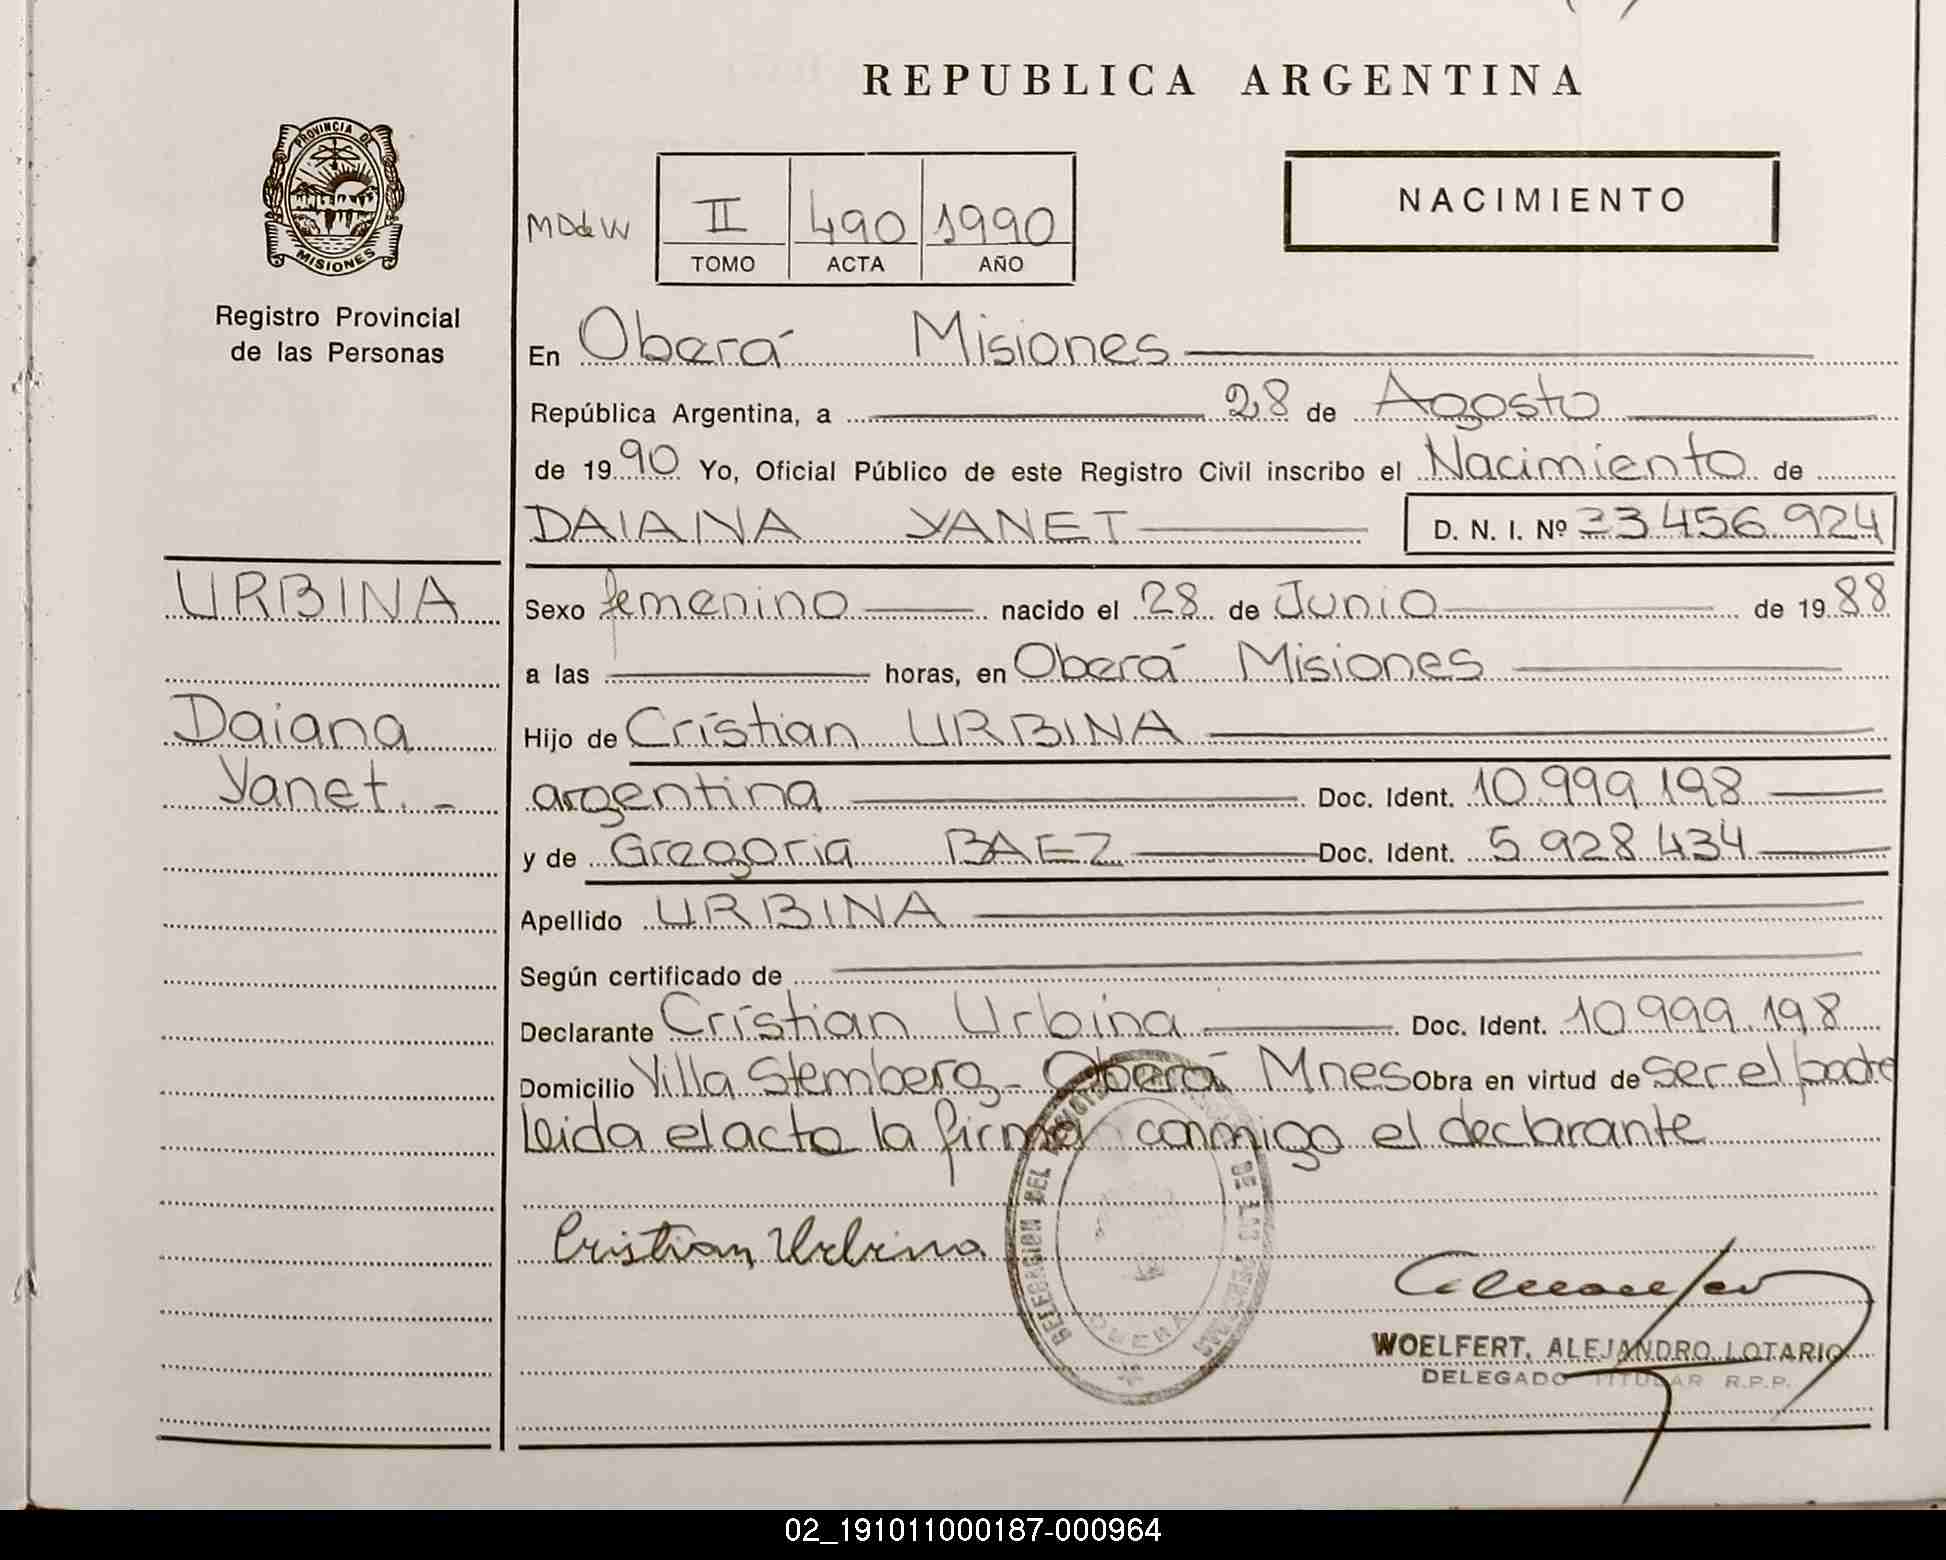 REPUBLICA ARGENTINA
PROVINCIA DE
MISIONES
Registro Provincial
de las Personas
NACIMIENTO
MDdeW II 490 1990
TOMO ACTA AÑO
En Oberá Misiones
República Argentina, a 28 de Agosto
de 1990 Yo, Oficial Público de este Registro Civil inscribo el Nacimiento de
DAIANA YANET D. N. I. Nº 33.456.924
URBINA
Daiana
Yanet. -
Sexo femenino nacido el 28 de Junio de 1988
a las horas, en Oberá Misiones
Hijo de Cristian URBINA
argentina Doc. Ident. 10.999.198
y de Gregoria BAEZ Doc. Ident. 5.928.434
Apellido URBINA
Según certificado de
Declarante Cristian Urbina Doc. Ident. 10.999.198
Domicilio Villa Stemberg - Oberá Mnes Obra en virtud de ser el padre
leida el acta la firma conmigo el declarante
Cristian Urbina
DELEGACION DEL DE LAS
OBERA
WOELFERT, ALEJANDRO LOTARIO
DELEGADO TITULAR R.P.P.
02_191011000187-000964